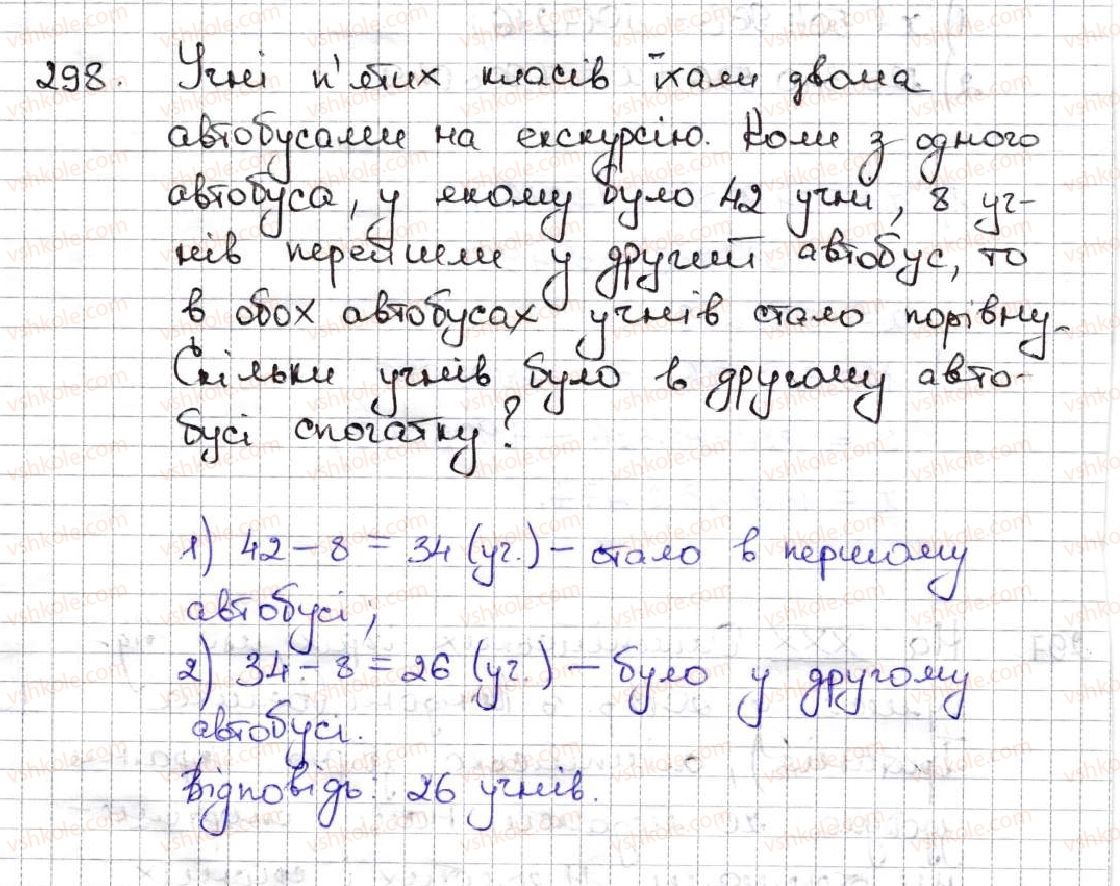 298. Учні п'ятих класів їхали двома
автобусами на екскурсію. Коли з одного
автобуса, у якому було 42 учні, 8 уч-
нів перейшли у другий автобус, то
в обох автобусах учнів стало порівну.
Скільки учнів було в другому авто-
бусі спочатку?
1) 42 - 8 = 34 (уч.) - стало в першому
автобусі;
2) 34 - 8 = 26 (уч.) - було у другому
автобусі.
Відповідь: 26 учнів.